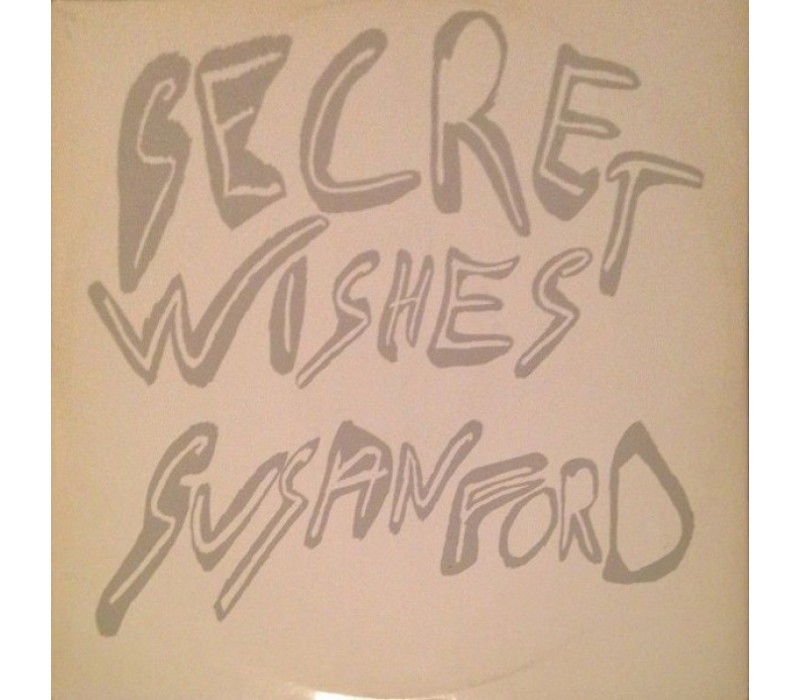 SECRET
WISHES
SUSAN FORD